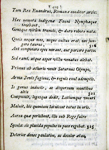 Tum Rex Euandrus, Romanæ conditor arcis:
Hæc nemora indigenæ Fauni Nymphæque
tenebant,
Gensque virum truncis, & duro robore nata,
Sed rami, atque asper victu venatus alebat.
Primus ab æthereo venit Saturnus Olympo,
Arma Jovis fugiens, & regnis exul ademptis.
Is genus indocile, ac dispersum montibus
altis
Composuit, legesque dedit, Latiumque vocari
Maluit, his quoniam latuisset tutus in oris.
Aurea quæ perhibent, illo sub Rege fuere
Sæcula: sic placida populos in pace regebat,
Deterior donec paulatim, ac decolor ætas